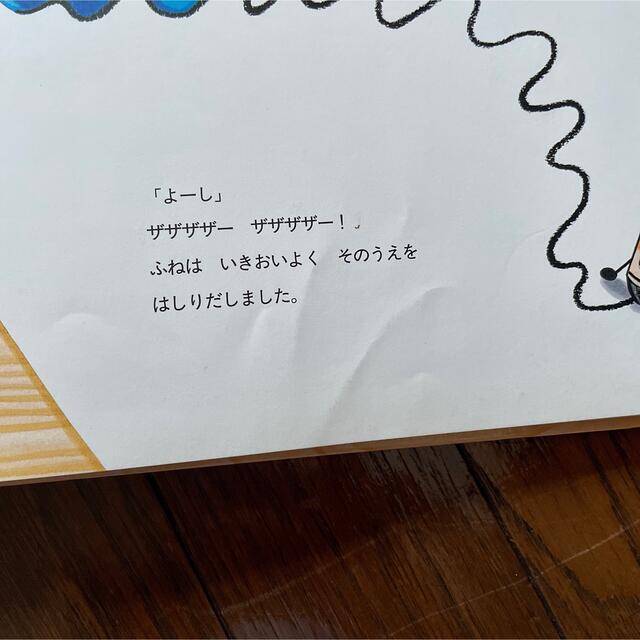 「よーし」
ザザザザー　ザザザザー！
ふねは　いきおいよく　そのうえを
はしりだしました。